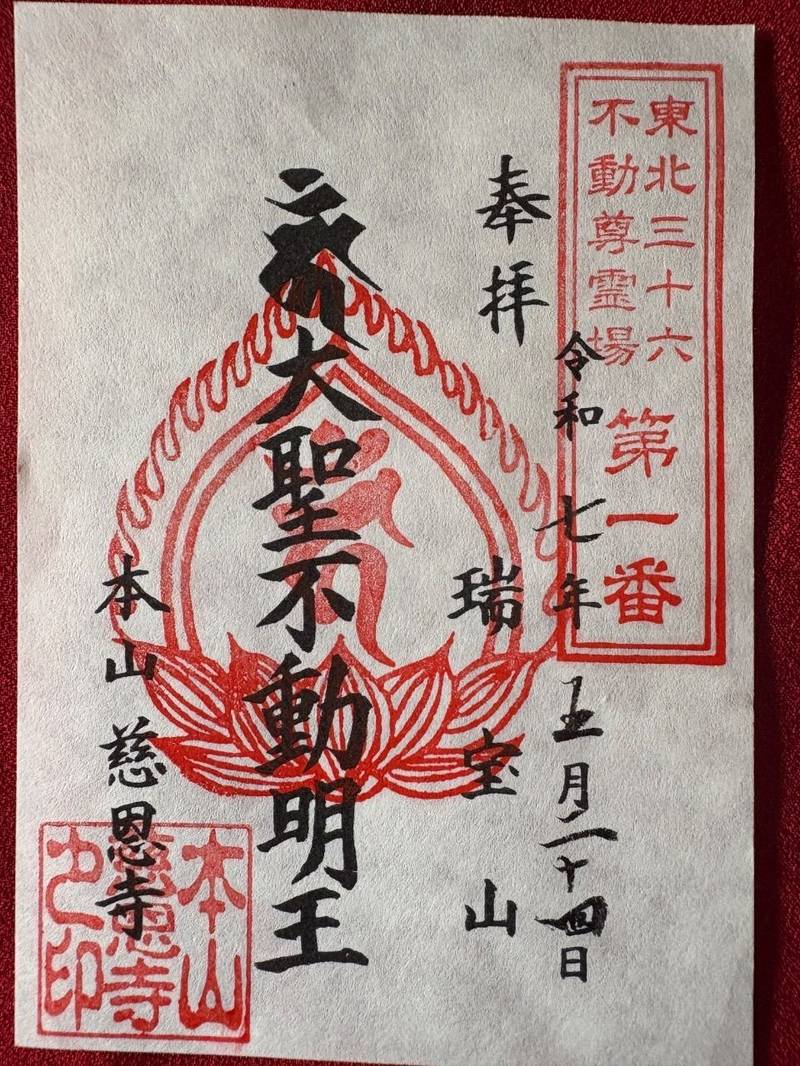 東北三十六
不動尊霊場
第一番
奉拝
令和七年五月二十四日
瑞宝山
大聖不動明王
本山慈恩寺
本山
慈恩寺
之印